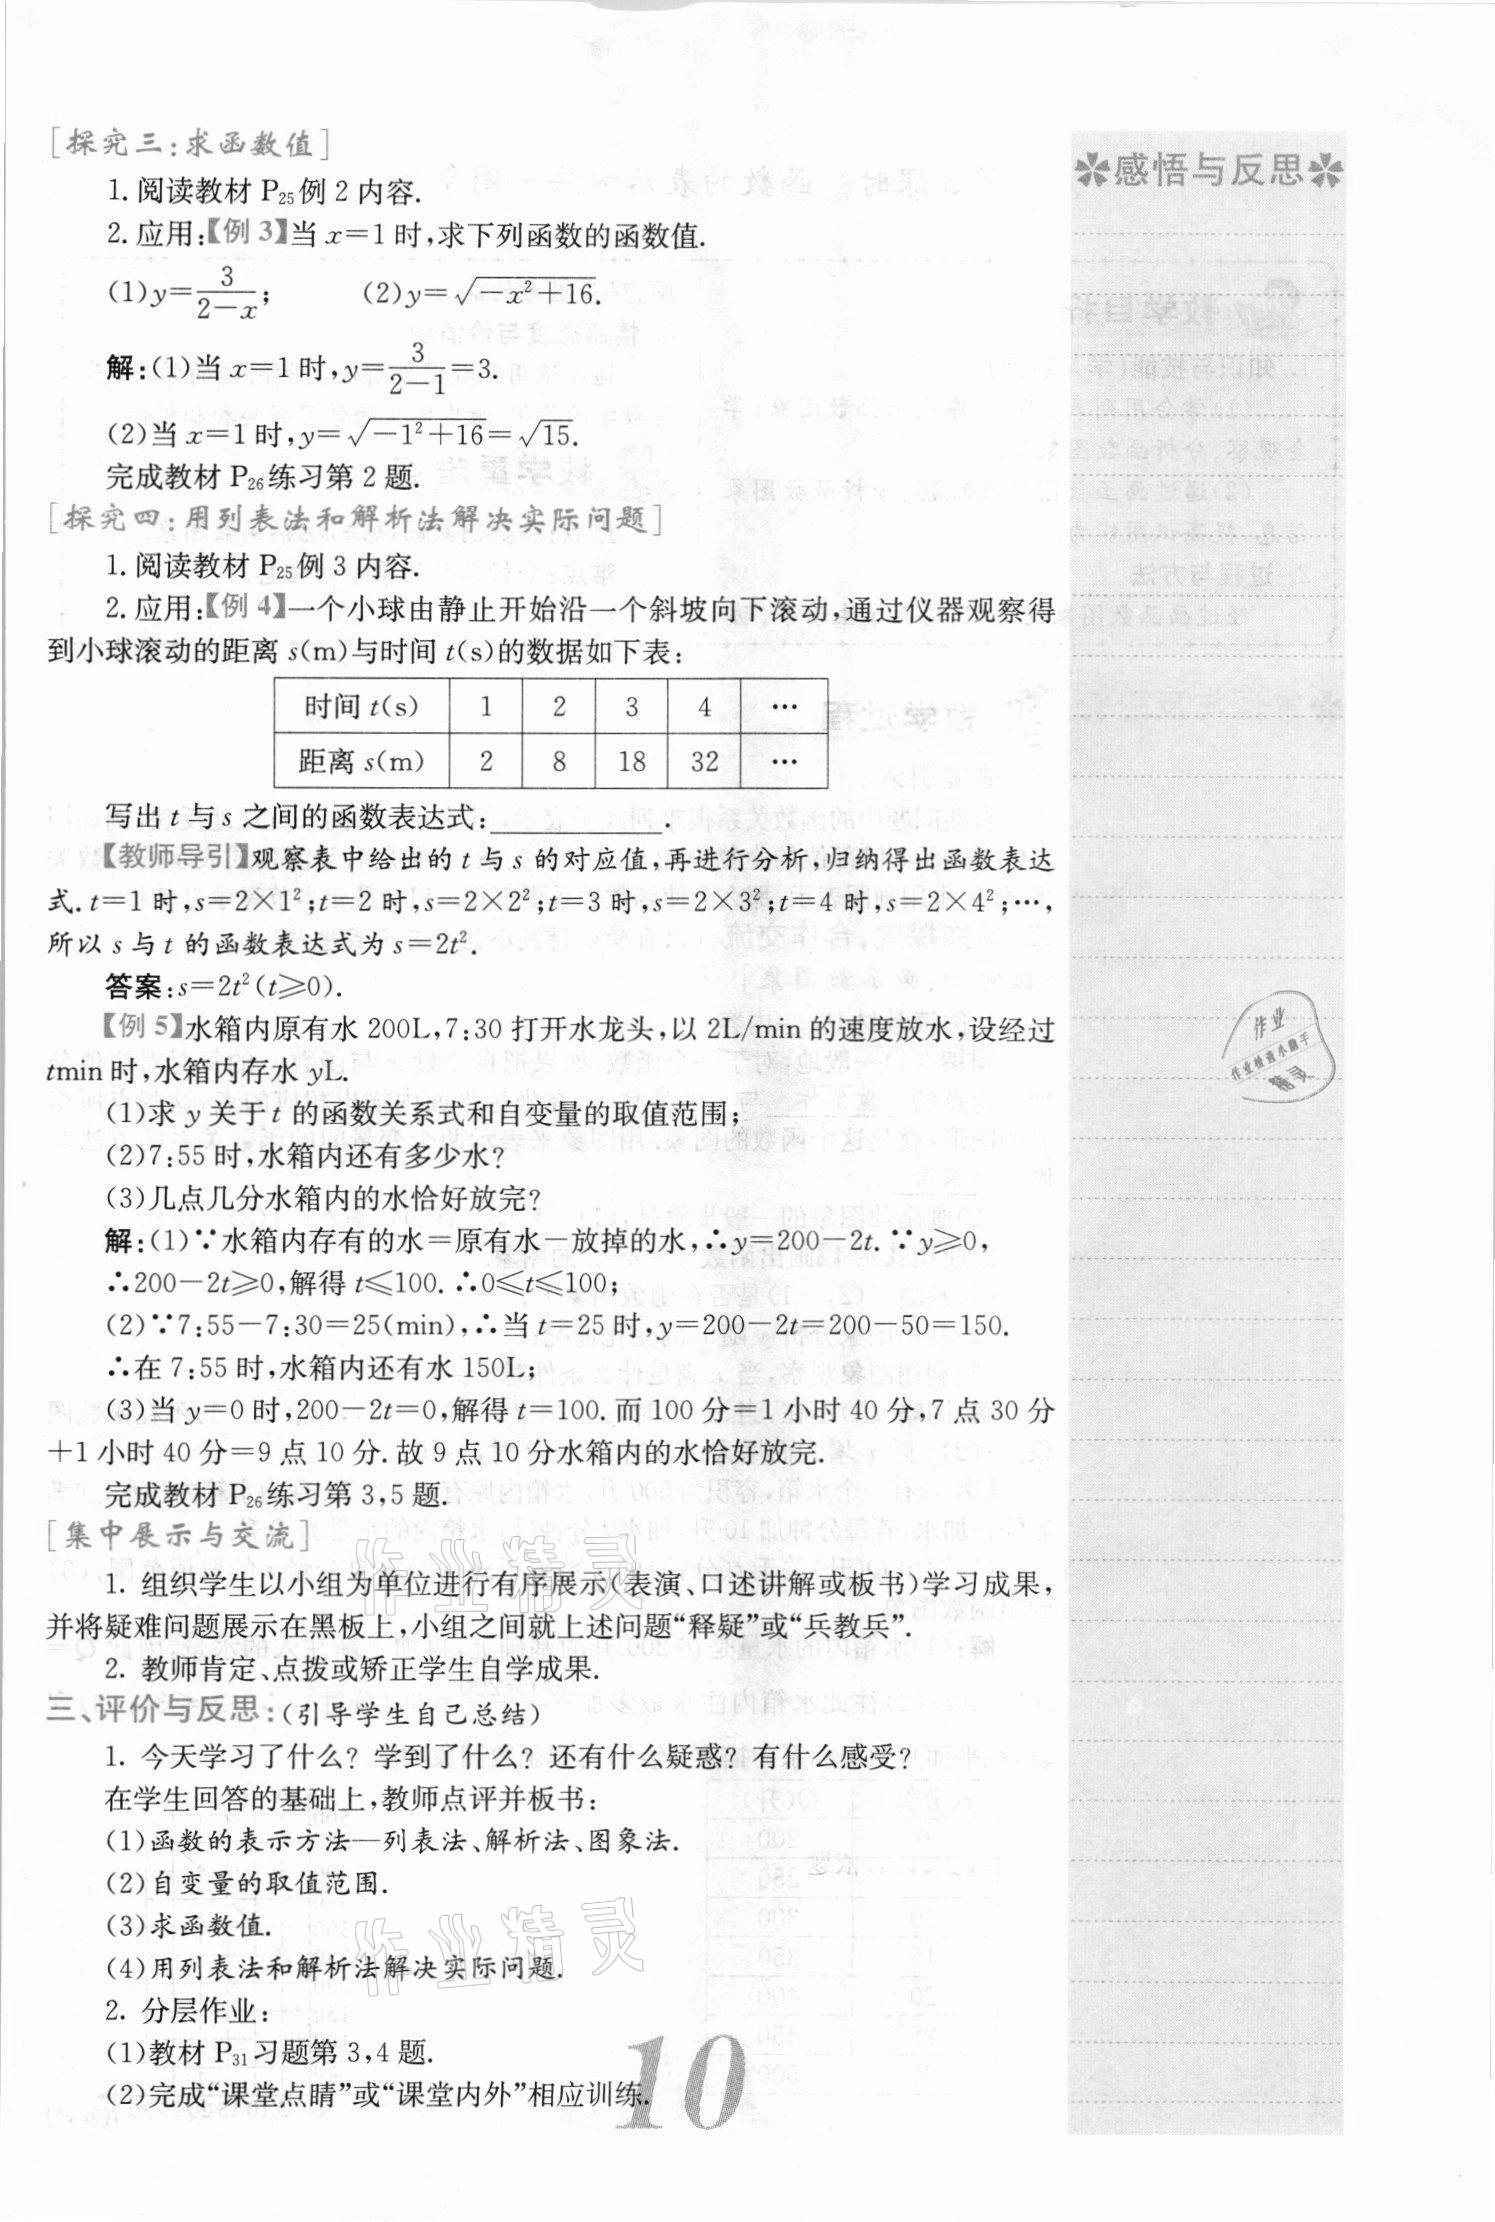 [探究三:求函数值]
1. 阅读教材 P25例 2 内容.
2. 应用:【例 3】当 x=1 时,求下列函数的函数值.
(1)y=3/(2-x); (2)y=√(-x²+16).
解:(1)当 x=1 时,y=3/(2-1)=3.
(2)当 x=1 时,y=√(-1²+16)=√15.
完成教材 P26练习第 2 题.
[探究四:用列表法和解析法解决实际问题]
1. 阅读教材 P25例 3 内容.
2. 应用:【例 4】一个小球由静止开始沿一个斜坡向下滚动,通过仪器观察得
到小球滚动的距离 s(m)与时间 t(s)的数据如下表:
时间 t(s) 1 2 3 4 …
距离 s(m) 2 8 18 32 …
写出 t 与 s 之间的函数表达式:____________.
【教师导引】观察表中给出的 t 与 s 的对应值,再进行分析,归纳得出函数表达
式. t=1 时,s=2×1²;t=2 时,s=2×2²;t=3 时,s=2×3²;t=4 时,s=2×4²;…,
所以 s 与 t 的函数表达式为 s=2t².
答案:s=2t²(t≥0).
【例 5】水箱内原有水 200L,7:30 打开水龙头,以 2L/min 的速度放水,设经过
tmin 时,水箱内存水 yL.
(1)求 y 关于 t 的函数关系式和自变量的取值范围;
(2)7:55 时,水箱内还有多少水?
(3)几点几分水箱内的水恰好放完?
解:(1)∵水箱内存有的水=原有水-放掉的水,∴y=200-2t. ∵y≥0,
∴200-2t≥0,解得 t≤100. ∴0≤t≤100;
(2)∵7:55-7:30=25(min),∴当 t=25 时,y=200-2t=200-50=150.
∴在 7:55 时,水箱内还有水 150L;
(3)当 y=0 时,200-2t=0,解得 t=100. 而 100 分=1 小时 40 分,7 点 30 分
+1 小时 40 分=9 点 10 分. 故 9 点 10 分水箱内的水恰好放完.
完成教材 P26练习第 3,5 题.
[集中展示与交流]
1. 组织学生以小组为单位进行有序展示(表演、口述讲解或板书)学习成果,
并将疑难问题展示在黑板上,小组之间就上述问题“释疑”或“兵教兵”.
2. 教师肯定、点拨或矫正学生自学成果.
三、评价与反思:(引导学生自己总结)
1. 今天学习了什么? 学到了什么? 还有什么疑惑? 有什么感受?
在学生回答的基础上,教师点评并板书:
(1)函数的表示方法—列表法、解析法、图象法.
(2)自变量的取值范围.
(3)求函数值.
(4)用列表法和解析法解决实际问题.
2. 分层作业:
(1)教材 P31习题第 3,4 题.
(2)完成“课堂点睛”或“课堂内外”相应训练.
10
感悟与反思
作业
作业检查小助手
精灵
作业精灵
作业精灵